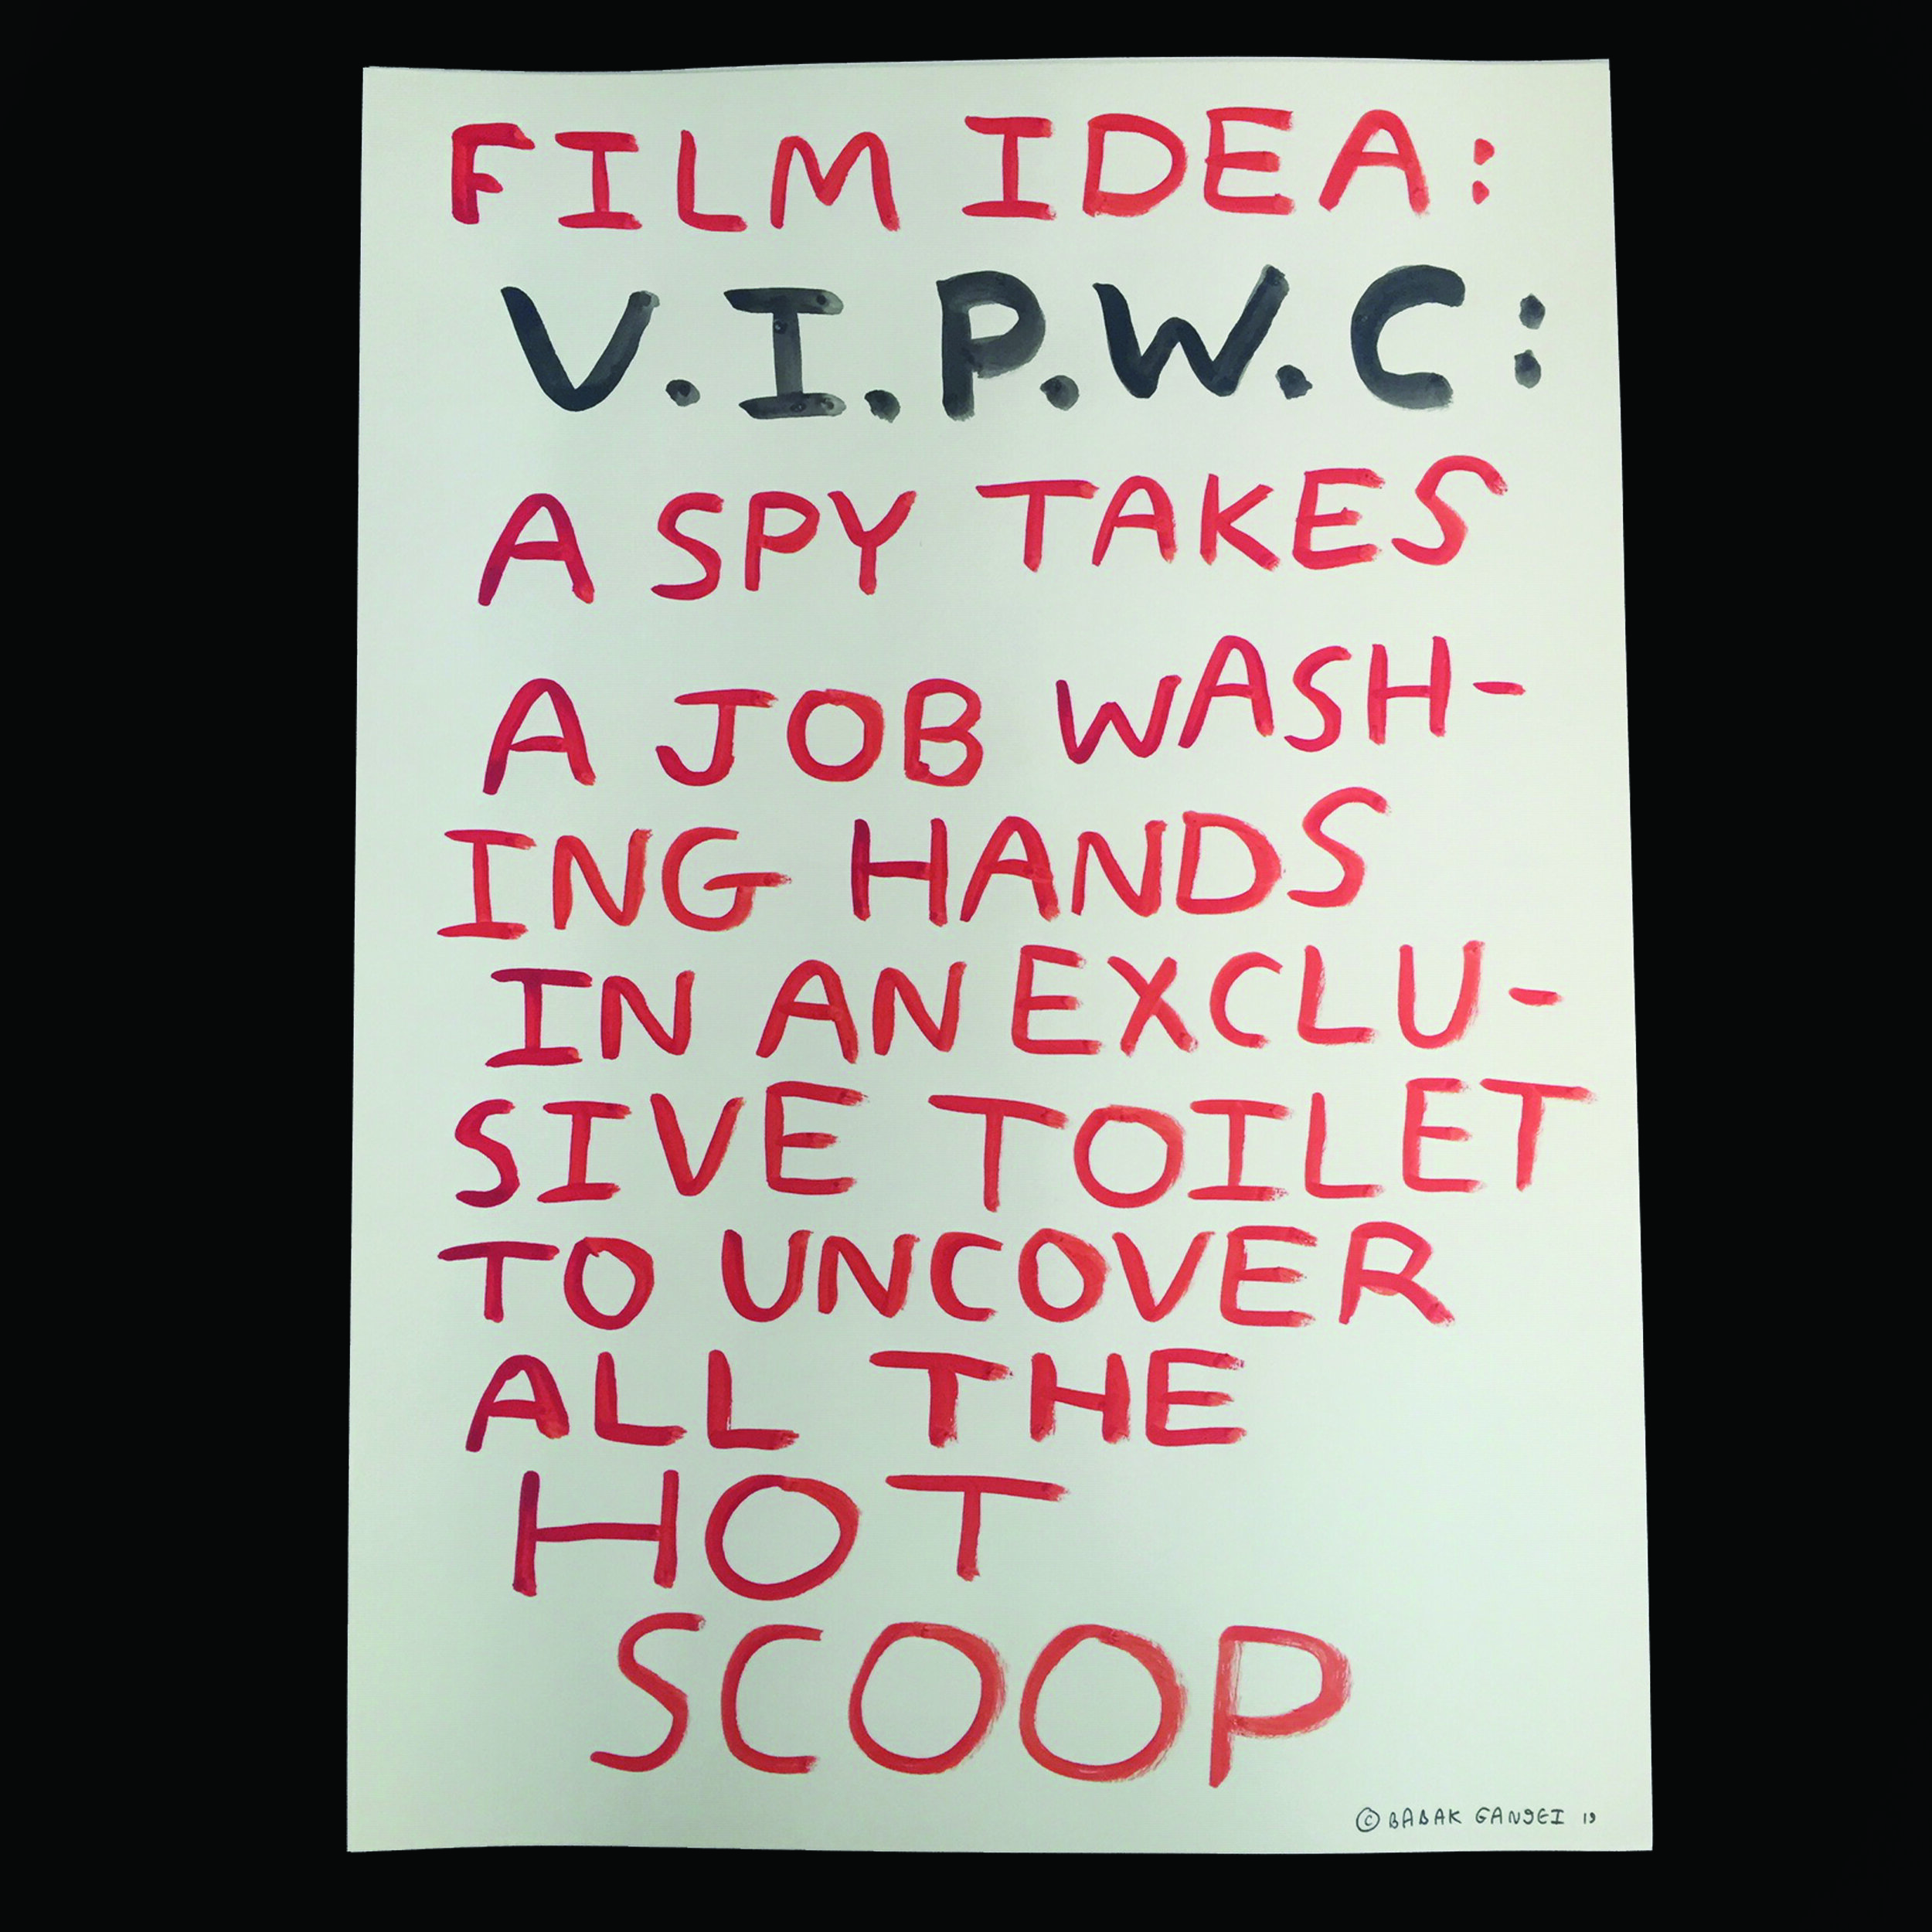 FILM IDEA:
V.I.P.W.C:
A SPY TAKES
A JOB WASH-
ING HANDS
IN AN EXCLU-
SIVE TOILET
TO UNCOVER
ALL THE
HOT
SCOOP
© BABAK GANJEI 19